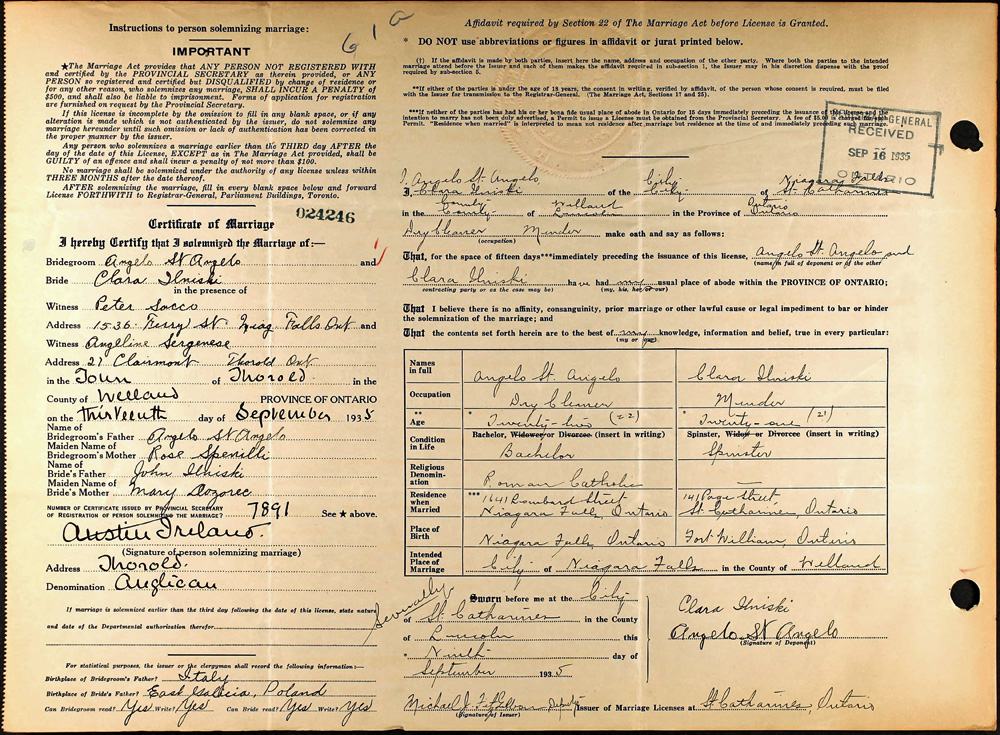 Instructions to person solemnizing marriage:
IMPORTANT
★The Marriage Act provides that ANY PERSON NOT REGISTERED WITH
and certified by the PROVINCIAL SECRETARY as therein provided, or ANY
PERSON so registered and certified but DISQUALIFIED by change of residence or
for any other reason, who solemnizes any marriage, SHALL INCUR A PENALTY of
$500, and shall also be liable to imprisonment. Forms of application for registration
are furnished on request by the Provincial Secretary.
If this license is incomplete by the omission to fill in any blank space, or if any
alteration is made which is not authenticated by the issuer, do not solemnize any
marriage hereunder until such omission or lack of authentication has been corrected in
the proper manner by the issuer.
Any person who solemnizes a marriage earlier than the THIRD DAY AFTER the
day of the date of this License, EXCEPT as in The Marriage Act provided, shall be
GUILTY of an offence and shall incur a penalty of not more than $100.
No marriage shall be solemnized under the authority of any license unless within
THREE MONTHS after the date thereof.
AFTER solemnizing the marriage, fill in every blank space below and forward
License FORTHWITH to Registrar-General, Parliament Buildings, Toronto.
024246
Certificate of Marriage
I hereby Certify that I solemnized the Marriage of:—
Bridegroom Angelo St Angelo and
Bride Clara Ilniski
in the presence of
Witness Peter Sacco
Address 1536 Ferry St. Niag. Falls Ont and
Witness Angeline Sergenese
Address 21 Clairmont Thorold Ont
in the Town of Thorold in the
County of Welland PROVINCE OF ONTARIO
on the thirteenth day of September 1935
Name of
Bridegroom's Father Angelo St Angelo
Maiden Name of
Bridegroom's Mother Rose
Name of
Bride's Father John Ilniski
Maiden Name of
Bride's Mother Mary Dozorec
NUMBER OF CERTIFICATE ISSUED BY PROVINCIAL SECRETARY
OF REGISTRATION OF PERSON SOLEMNIZING THE MARRIAGE? 7891 See ★ above.
Austin Ireland.
(Signature of person solemnizing marriage)
Address Thorold.
Denomination Anglican
If marriage is solemnized earlier than the third day following the date of this license, state nature
and date of the Departmental authorization therefor
For statistical purposes, the issuer or the clergyman shall record the following information:—
Birthplace of Bridegroom's Father? Italy
Birthplace of Bride's Father? East Galicia, Poland
Can Bridegroom read? Yes Write? Yes Can Bride read? Yes Write? Yes
6 1 a
Affidavit required by Section 22 of The Marriage Act before License is Granted.
* DO NOT use abbreviations or figures in affidavit or jurat printed below.
(†) If the affidavit is made by both parties, insert here the name, address and occupation of the other party. Where both the parties to the intended
marriage attend before the Issuer and each of them makes the affidavit required in sub-section 1, the Issuer may in his discretion dispense with the proof
required by sub-section 5.
**If either of the parties is under the age of 18 years, the consent in writing, verified by affidavit, of the person whose consent is required, must be filed
with the Issuer for transmission to the Registrar-General. (The Marriage Act, Sections 17 and 25).
***If neither of the parties has had his or her bona fide usual place of abode in Ontario for 15 days immediately preceding the issuance of
intention to marry has not been duly advertised, a Permit to issue a License must be obtained from the Provincial Secretary. A fee of $5.00 is charged for
Permit. "Residence when married" is interpreted to mean not residence after marriage but residence at the time of and immediately preceding such marriage.
GENERAL
RECEIVED
SEP 16 1935
ONTARIO
I, Angelo St. Angelo City Niagara Falls
I, Clara Ilniski of the City of St Catharines
County Welland Ontario
in the County of Lincoln in the Province of Ontario
Dry Cleaner Mender make oath and say as follows:
(occupation)
That, for the space of fifteen days***immediately preceding the issuance of this license, Angelo St. Angelo and
(name in full of deponent or of the other
Clara Ilniski have had my usual place of abode within the PROVINCE OF ONTARIO;
contracting party or as the case may be) (my, his, her or our)
That I believe there is no affinity, consanguinity, prior marriage or other lawful cause or legal impediment to bar or hinder
the solemnization of the marriage; and
That the contents set forth herein are to the best of my knowledge, information and belief, true in every particular:
(my or our)
Names in full Angelo St. Angelo Clara Ilniski
Occupation Dry Cleaner Mender
** Age * Twenty-two (22) * Twenty-one (21)
Condition in Life Bachelor, Widower or Divorcee (insert in writing) Bachelor Spinster, Widow or Divorcee (insert in writing) Spinster
Religious Denomination Roman Catholic —
Residence when Married *** 1641 Lombard Street Niagara Falls, Ontario 141 Page Street St. Catharines, Ontario
Place of Birth Niagara Falls, Ontario Fort William, Ontario
Intended Place of Marriage City of Niagara Falls in the County of Welland
Severally Sworn before me at the City
of St Catharines in the County
of Lincoln this
* Ninth day of
September 1935
Clara Ilniski
Angelo St Angelo
(Signature of Deponent)
Michael J. Deputy Issuer of Marriage Licenses at St Catharines, Ontario
(Signature of Issuer)